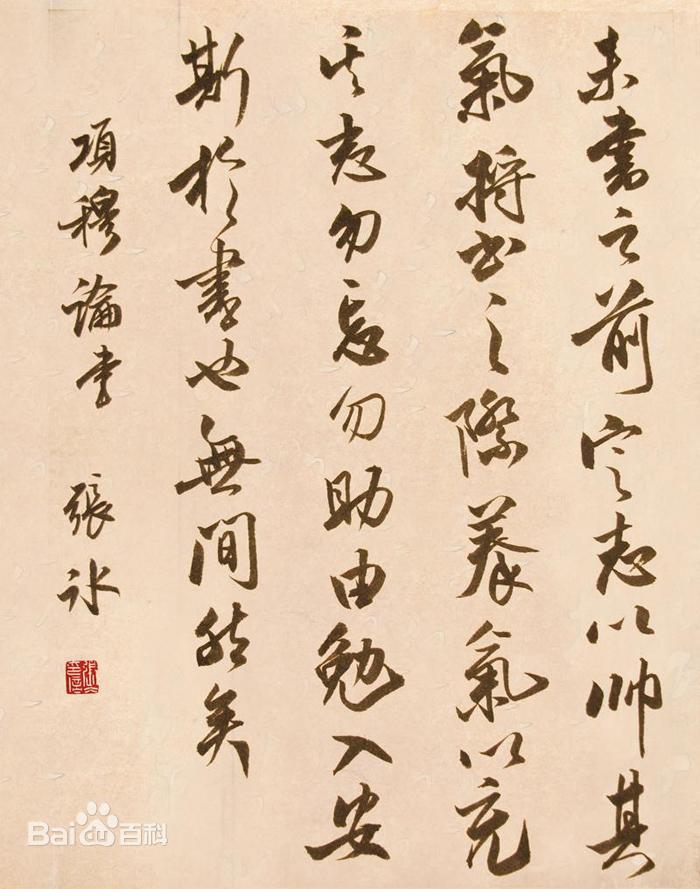 未書之前定志以帅其
氣將書之際養氣以充
其志勿忘勿助由勉入安
斯於書也無間然矣
項穆論書 張冰
Bai 百科